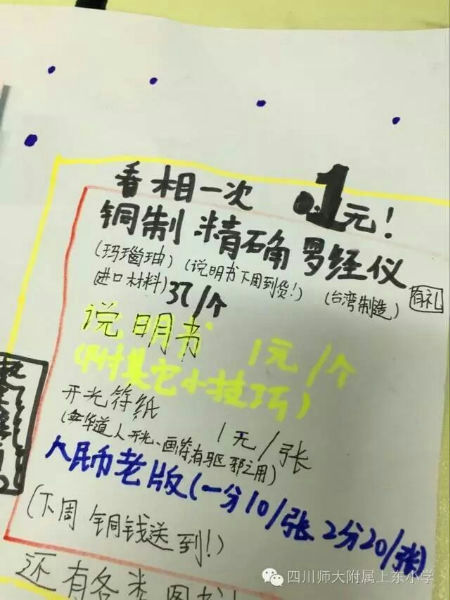 看相一次 .1元!
铜制 精确 罗经仪
(玛瑙轴) (说明书下周到货!) (台湾制造) 有礼
(进口材料) 37/个
说明书 1元/个
(附其它小技巧)
开光符纸 1元/张
(华道人开光、画符有驱邪之用)
人民币老版(一分10/张 2分20/张)
(下周 铜钱送到!)
还有各类图书!
四川师大附属上东小学